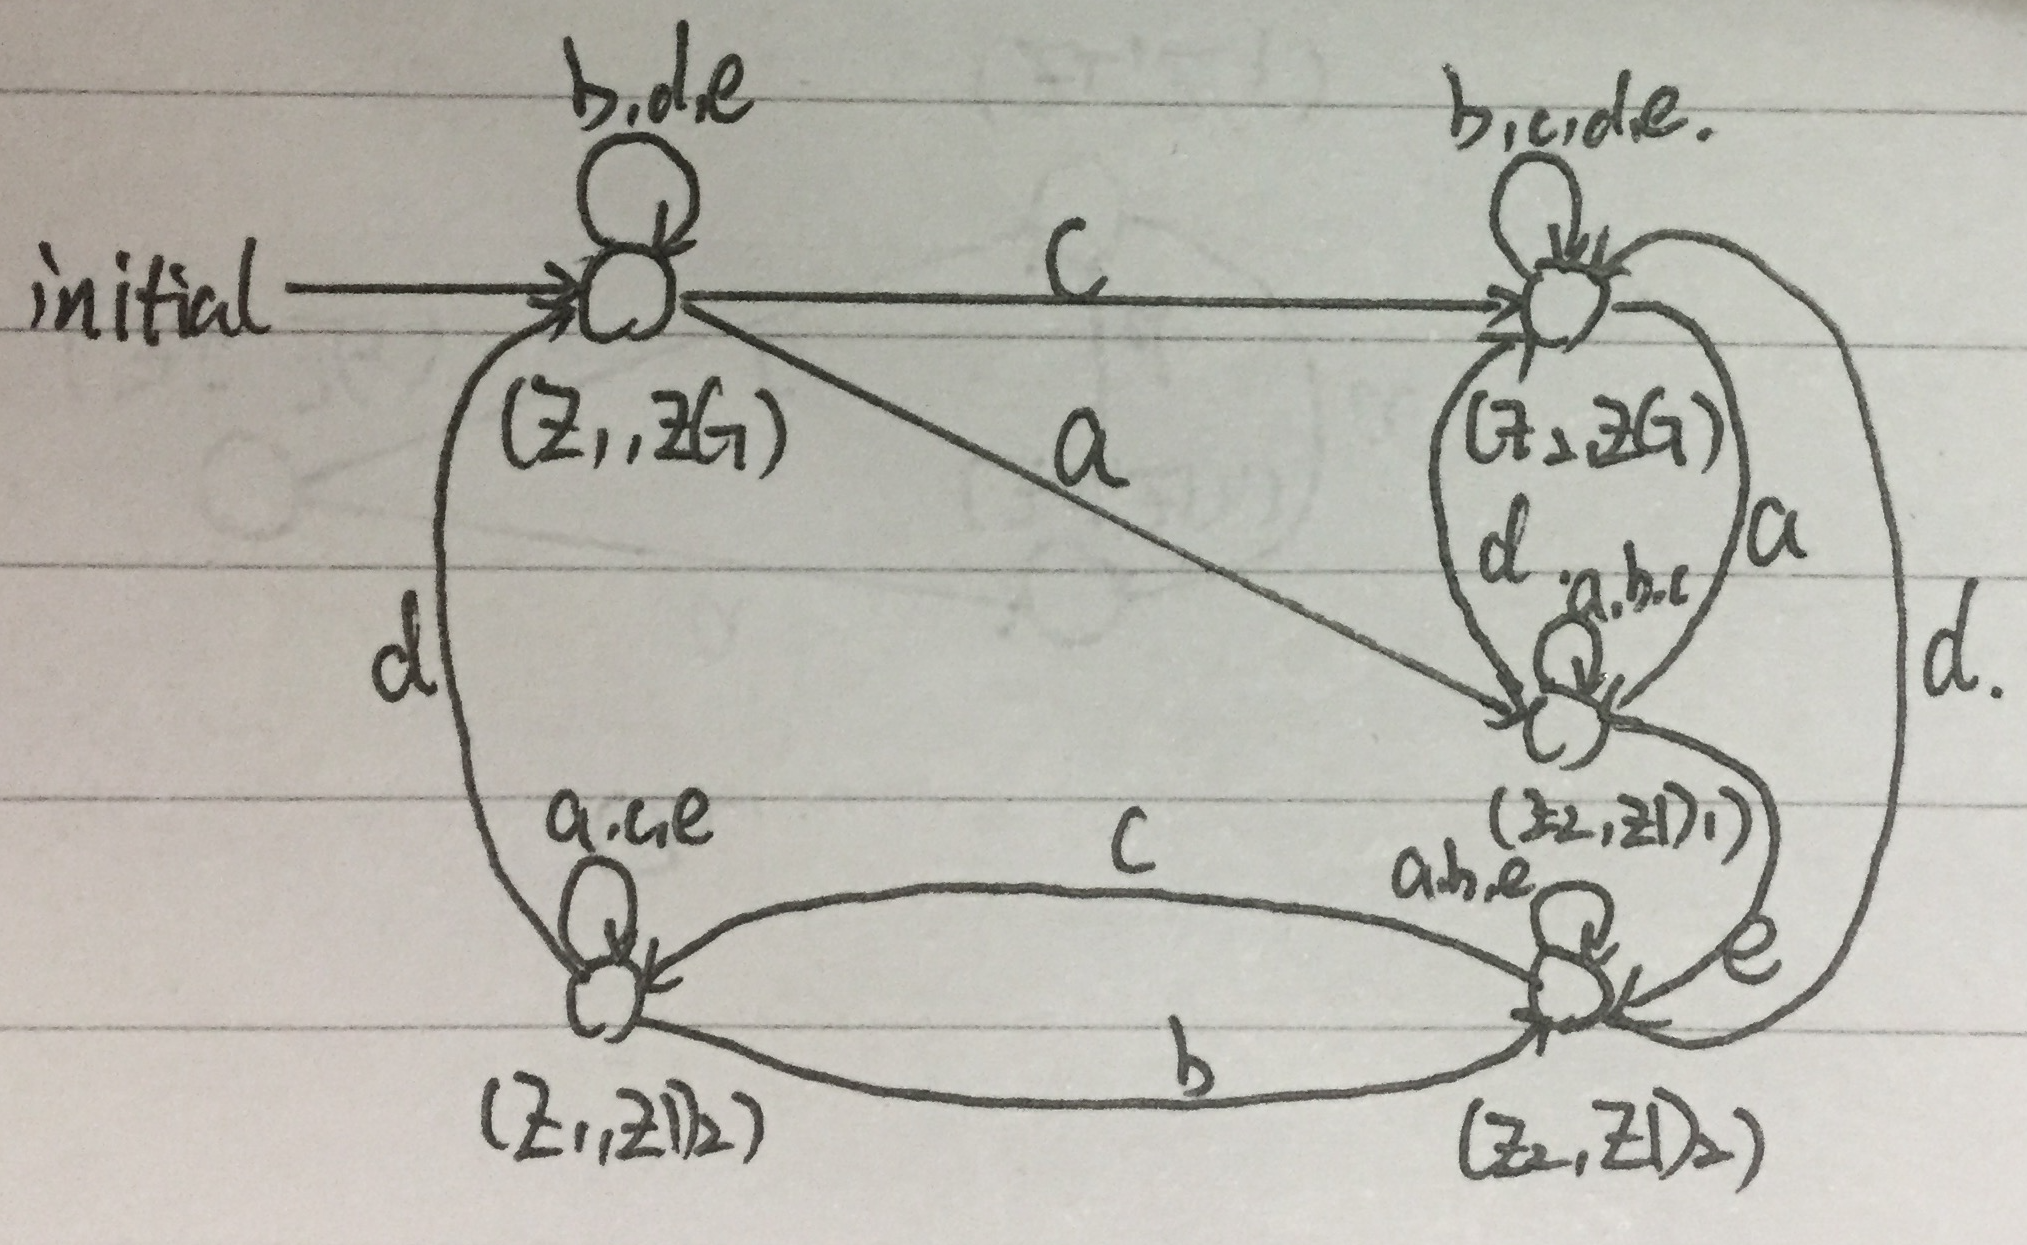 b,d,e
b,c,d,e.
initial
c
(Z1,ZG)
(Z2,ZG)
a
d
a
a.b.c
d
d.
(Z2,ZD1)
a.c,e
c
a.b,e
e
b
(Z1,ZD2)
(Z2,ZD2)